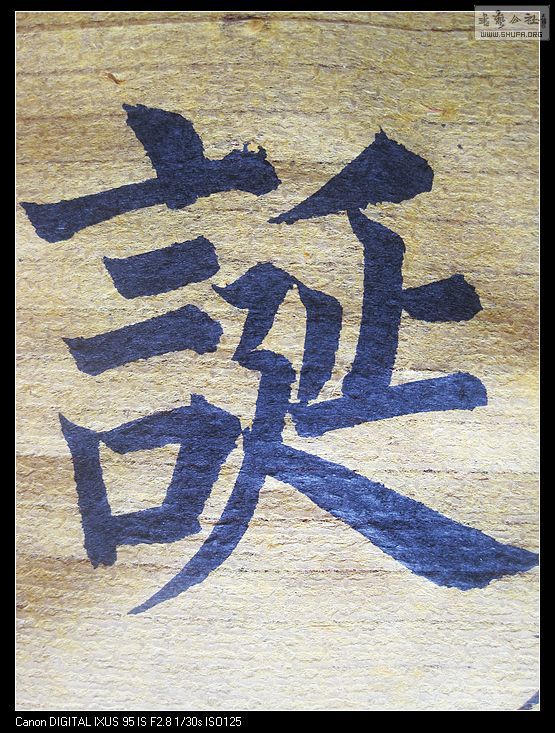 書藝公社
WWW.SHUFA.ORG
誕
Canon DIGITAL IXUS 95 IS F2.8 1/30s ISO125